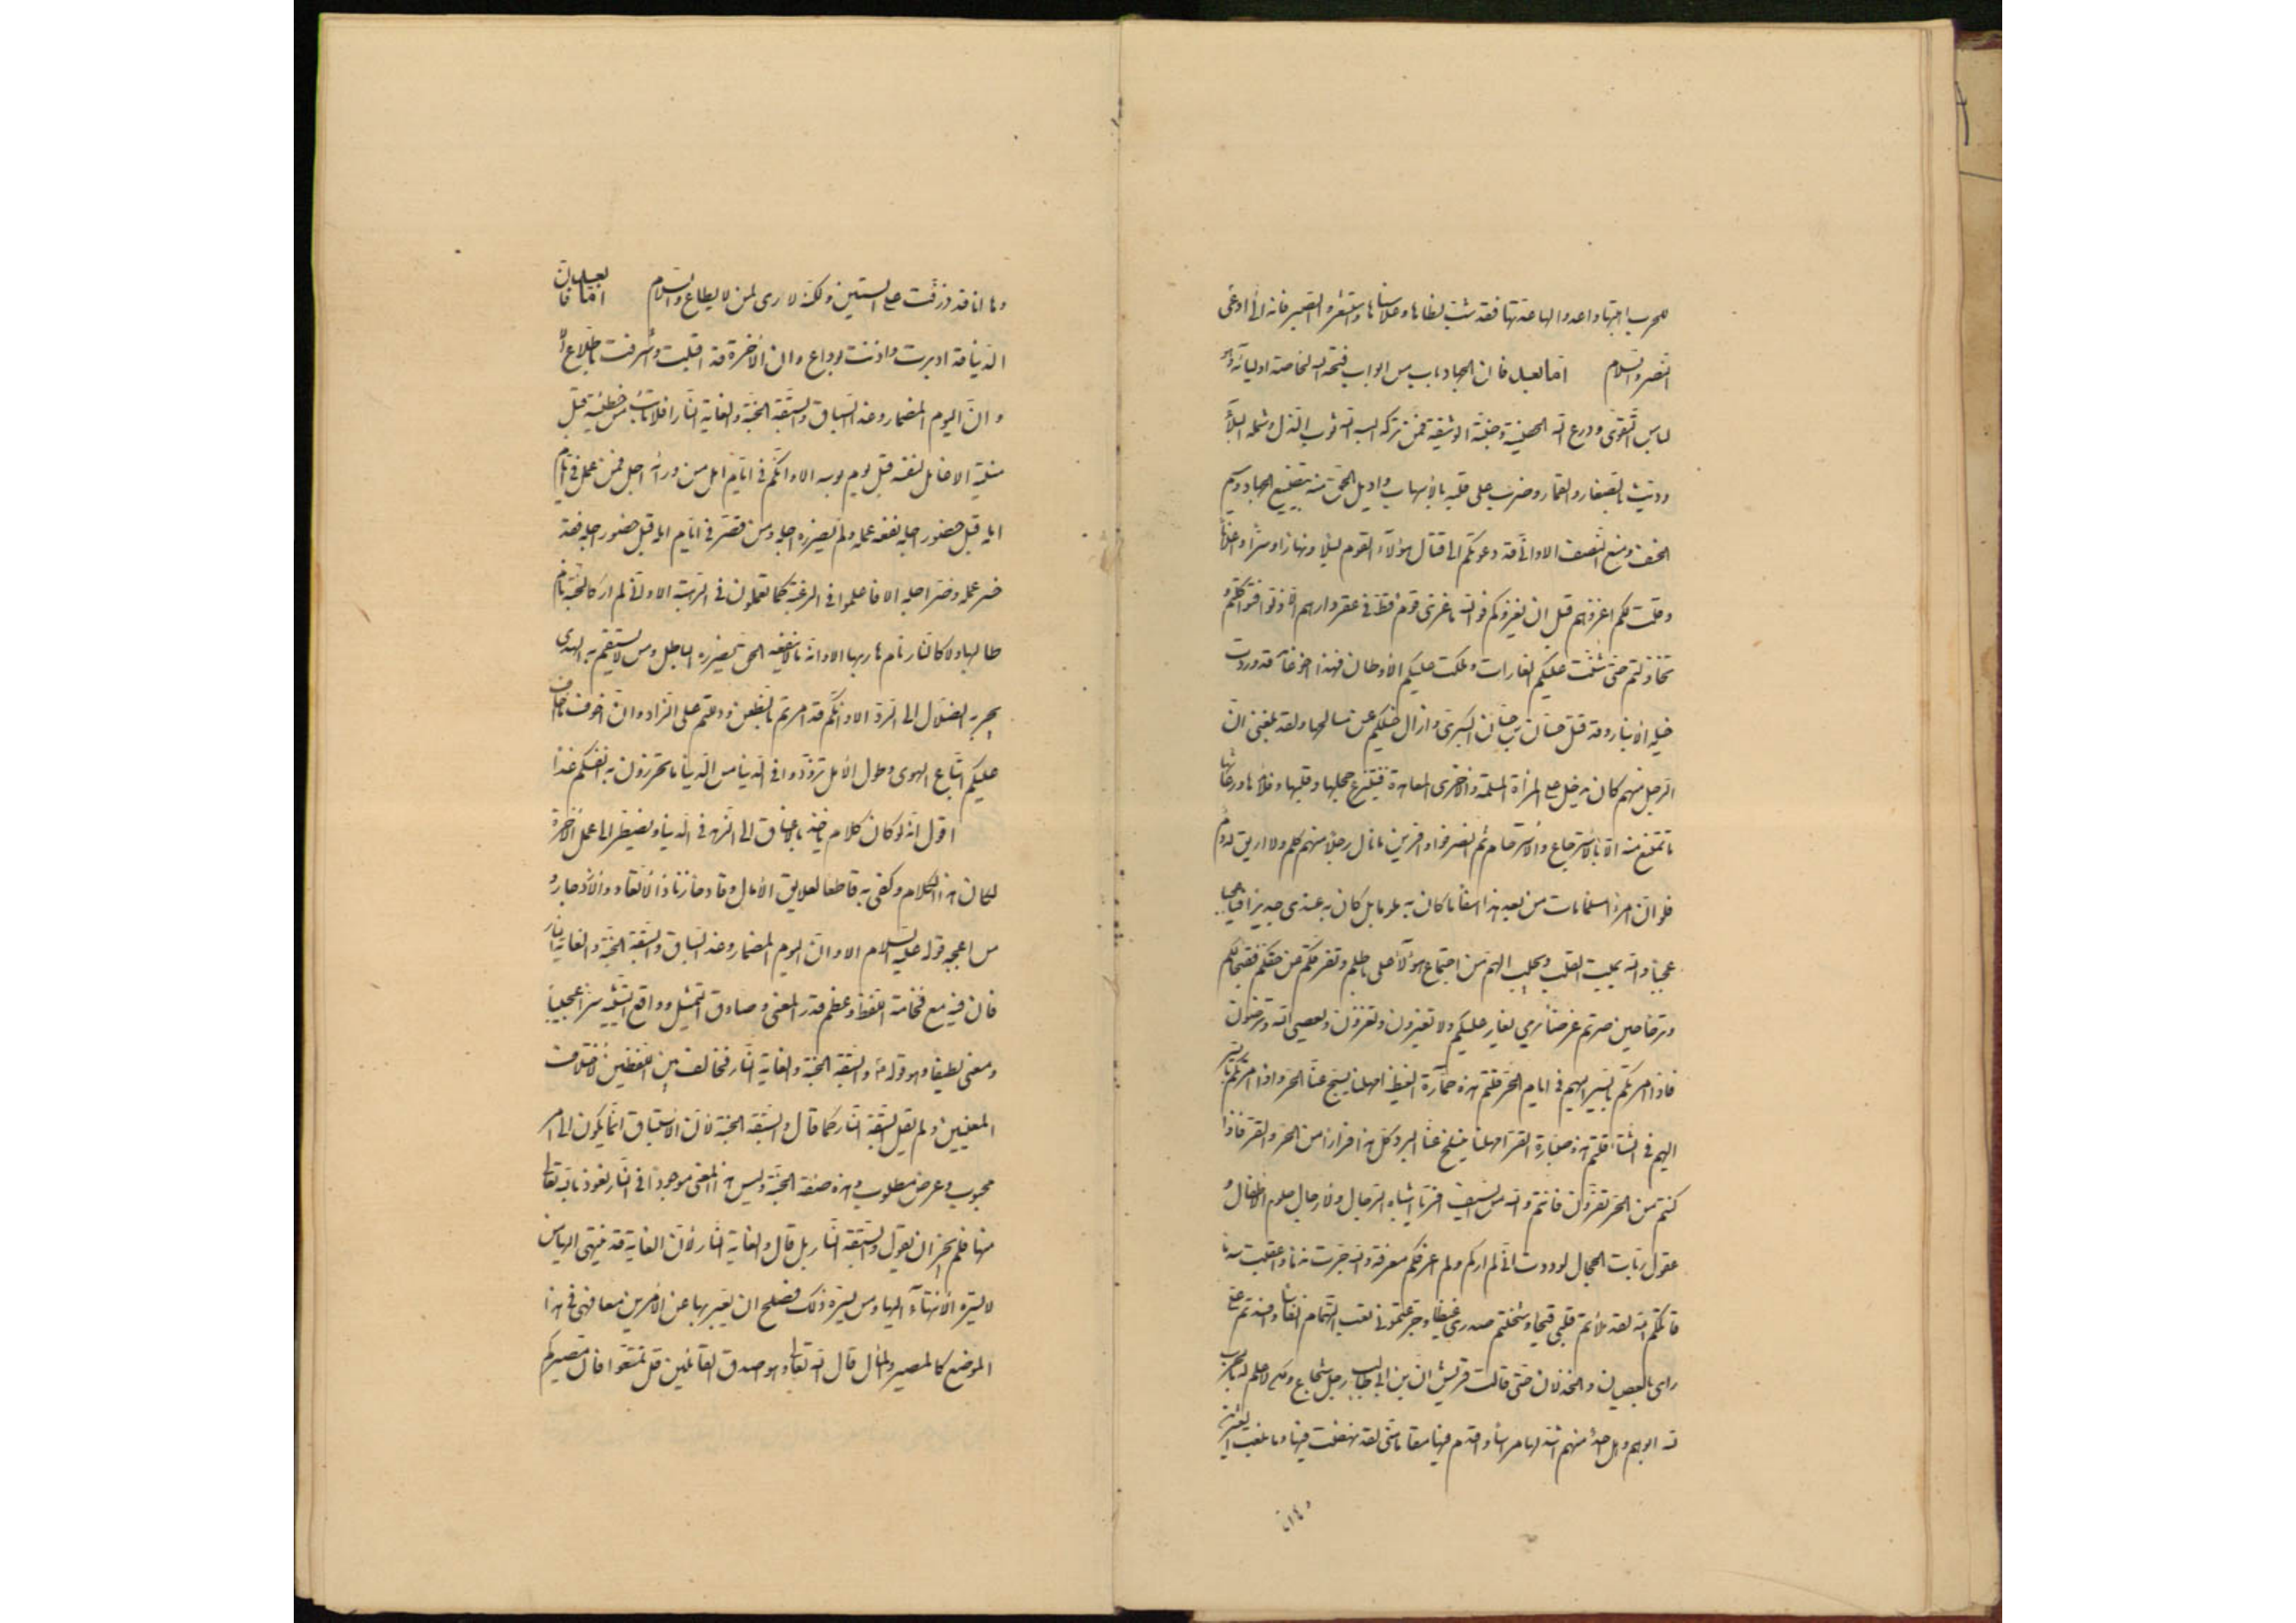 للحرب اهبتها واعدوا لها عدتها فقد شب لظاها وعلا سناها واستشعروا الصبر فانه ادعى
النصر والسلام اما بعد فان الجهاد باب من ابواب فتحه الله لخاصة اوليائه وهو
لباس التقوى ودرع الله الحصينة وجنته الوثيقة فمن تركه البسه الله ثوب الذل وشمله البلاء
وديث بالصغار والقماء وضرب على قلبه بالاسهاب واديل الحق منه بتضييع الجهاد وسيم
الخسف ومنع النصف الا وانى قد دعوتكم الى قتال هؤلاء القوم ليلا ونهارا وسرا واعلانا
وقلت لكم اغزوهم قبل ان يغزوكم فوالله ما غزى قوم قط فى عقر دارهم الا ذلوا فتواكلتم و
تخاذلتم حتى شنت عليكم الغارات وملكت عليكم الاوطان فهذا اخو غامد قد وردت
خيله الانبار وقد قتل حسان بن حسان البكرى وازال خيلكم عن مسالحها ولقد بلغنى ان
الرجل منهم كان يدخل على المرأة المسلمة والاخرى المعاهدة فينتزع حجلها وقلبها وقلائدها ورعاثها
ما تمتنع منه الا بالاسترجاع والاسترحام ثم انصرفوا وافرين ما نال رجلا منهم كلم ولا اريق له دم
فلو ان امرءا مسلما مات من بعد هذا اسفا ما كان به ملوما بل كان به عندى جديرا فيا عجبا
عجبا والله يميت القلب ويجلب الهم من اجتماع هؤلاء على باطلهم وتفرقكم عن حقكم فقبحا لكم
وترحا حين صرتم غرضا يرمى يغار عليكم ولا تغيرون وتغزون ولا تغزون ويعصى الله وترضون
فاذا امرتكم بالسير اليهم فى ايام الحر قلتم هذه حمارة القيظ امهلنا يسبخ عنا الحر واذا امرتكم بالسير
اليهم فى الشتاء قلتم هذه صبارة القر امهلنا ينسلخ عنا البرد كل هذا فرارا من الحر والقر فاذا
كنتم من الحر تفرون فانتم والله من السيف افر يا اشباه الرجال ولا رجال حلوم الاطفال و
عقول ربات الحجال لوددت انى لم اركم ولم اعرفكم معرفة والله جرت ندما واعقبت سدما
قاتلكم الله لقد ملأتم قلبى قيحا وشحنتم صدرى غيظا وجرعتمونى نغب التهمام انفاسا وافسدتم على
رايى بالعصيان والخذلان حتى قالت قريش ان ابن ابى طالب رجل شجاع ولكن لا علم له بالحرب
لله ابوهم وهل احد منهم اشد لها مراسا واقدم فيها مقاما منى لقد نهضت فيها وما بلغت العشرين
وها انا قد ذرفت على الستين ولكنه لا رى لمن لا يطاع والسلام اما بعد فان
الدنيا قد ادبرت واذنت بوداع وان الاخرة قد اقبلت واشرفت باطلاع الا
وان اليوم المضمار وغدا السباق والسبقة الجنة والغاية النار افلا تائب من خطيئته قبل
منيته الا عامل لنفسه قبل يوم بوسه الا وانكم فى ايام امل من ورائه اجل فمن عمل فى ايام
امله قبل حضور اجله نفعه عمله ولم يضرره اجله ومن قصر فى ايام امله قبل حضور اجله فقد
خسر عمله وضره اجله الا فاعملوا فى الرغبة كما تعملون فى الرهبة الا وانى لم ار كالجنة نام
طالبها ولا كالنار نام هاربها الا وانه من لا ينفعه الحق يضرره الباطل ومن لا يستقم به الهدى
يجر به الضلال الى الردى الا وانكم قد امرتم بالظعن ودللتم على الزاد وان اخوف ما اخاف
عليكم اتباع الهوى وطول الامل تزودوا فى الدنيا من الدنيا ما تحرزون به انفسكم غدا
اقول انه لو كان كلام ياخذ بالاعناق الى الزهد فى الدنيا ويضطر الى عمل الاخرة
لكان هذا الكلام وكفى به قاطعا لعلايق الامال وقادحا زناد الاتعاظ والازدجار و
من اعجبه قوله عليه السلام الا وان اليوم المضمار وغدا السباق والسبقة الجنة والغاية النار
فان فيه مع فخامة اللفظ وعظم قدر المعنى وصادق التمثيل وواقع التشبيه سرا عجيبا
ومعنى لطيفا وهو قوله ع والسبقة الجنة والغاية النار فخالف بين اللفظين لاختلاف
المعنيين ولم يقل السبقة النار كما قال والسبقة الجنة لان الاستباق انما يكون الى امر
محبوب وغرض مطلوب وهذه صفة الجنة وليس هذا المعنى موجودا فى النار نعوذ بالله تعالى
منها فلم يجز ان يقول والسبقة النار بل قال والغاية النار لان الغاية قد ينتهى اليها من
لا يسره الانتهاء اليها ومن يسره ذلك فصلح ان يعبر بها عن الامرين معا فهى فى هذا
الموضع كالمصير والمآل قال الله تعالى وهو اصدق القائلين قل تمتعوا فان مصيركم